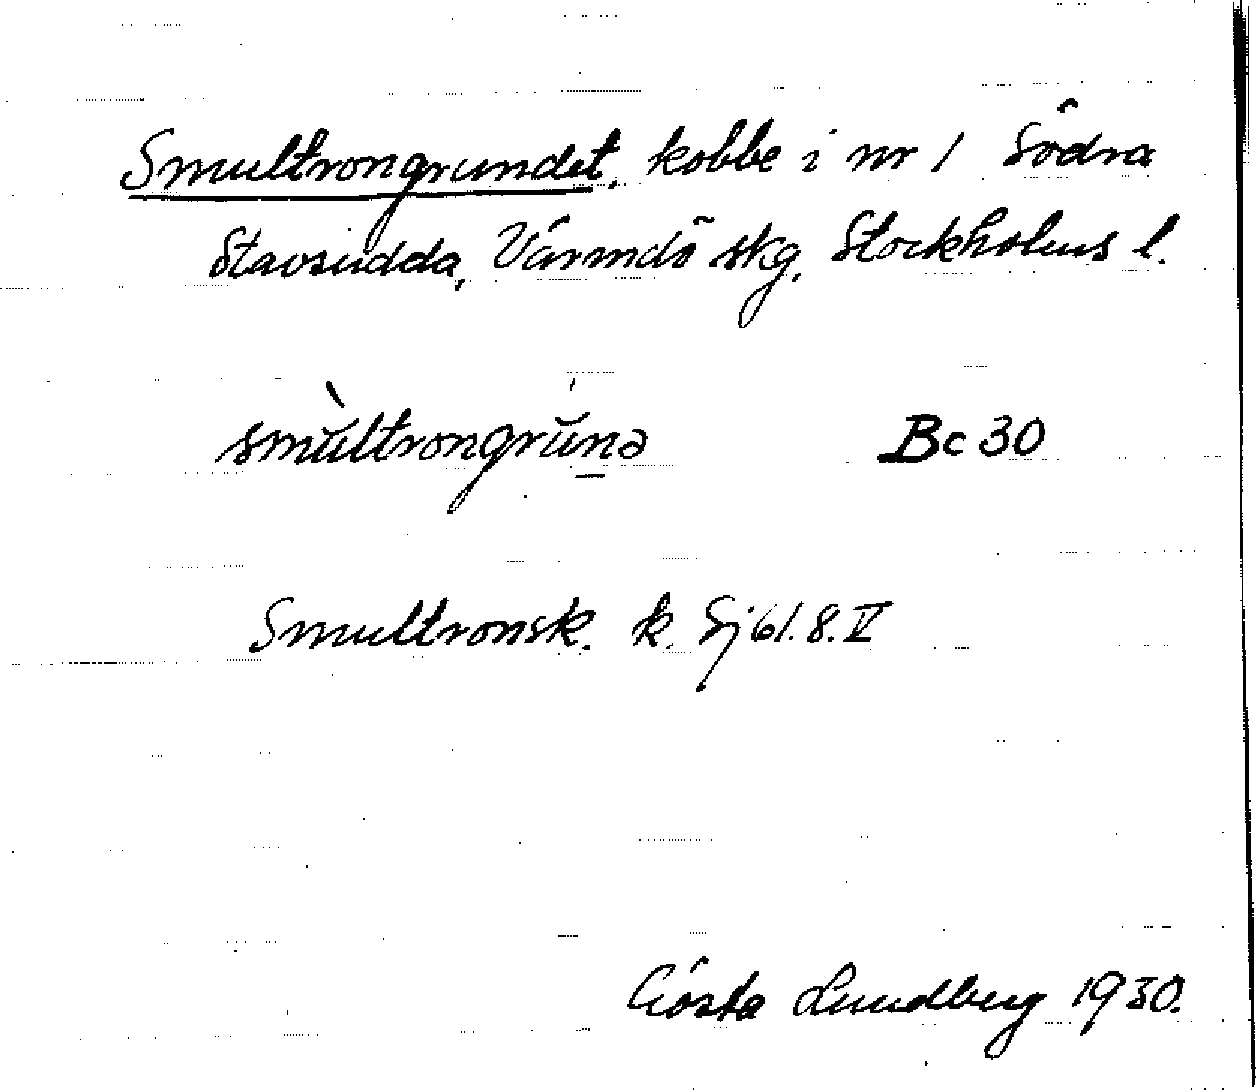 Smultrongrundet, kobbe i nr 1 Södra
Stavsudda, Värmdö skg, Stockholms l.
smùltrongrŭnə Bc 30
Smultronsk. k. Sj 61.8.V
Gösta Lundberg 1930.